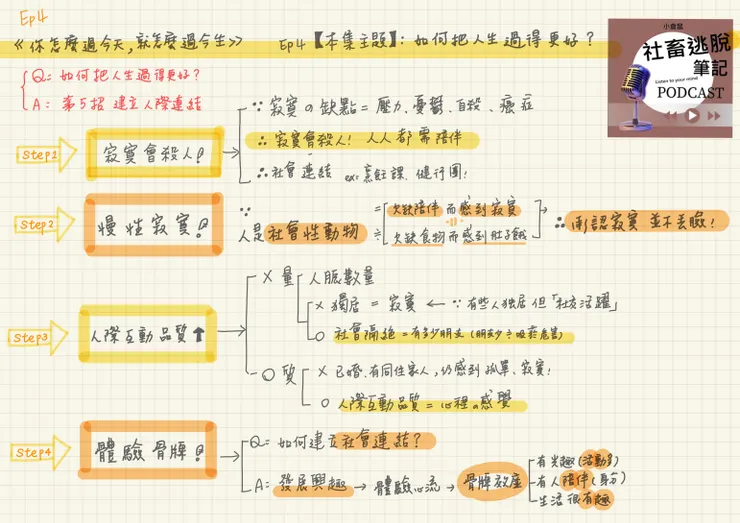 Ep4
《你怎麼過今天,就怎麼過今生》 Ep4【本集主題】: 如何把人生過得更好?
小倉鼠
社畜逃脫
筆記
Listen to your mind
PODCAST
Q: 如何把人生過得更好?
A: 第5招 建立人際連結
Step1
寂寞會殺人?
∵ 寂寞の缺點 = 壓力、憂鬱、自殺、癌症
∴ 寂寞會殺人! 人人都需陪伴
∴ 社會連結 ex: 烹飪課、健行團!
Step2
慢性寂寞?
∵
人是社會性動物
= 欠缺陪伴而感到寂寞
=||=
≒ 欠缺食物而感到肚子餓
∴ 承認寂寞並不丟臉!
Step3
人際互動品質↑
X 量 人脈數量
X 獨居 = 寂寞 ← ∵ 有些人獨居但「社交活躍」
O 社會隔絕 = 有多少朋友 (朋友少≒吸菸危害)
O 質 X 已婚、有同住家人,仍感到孤單、寂寞!
O 人際互動品質 = 心裡の感覺
Step4
體驗骨牌?
Q: 如何建立社會連結?
A: 發展興趣 → 體驗心流 → 骨牌效應
有光趣(活動多)
有人陪伴(身分)
生活很有趣